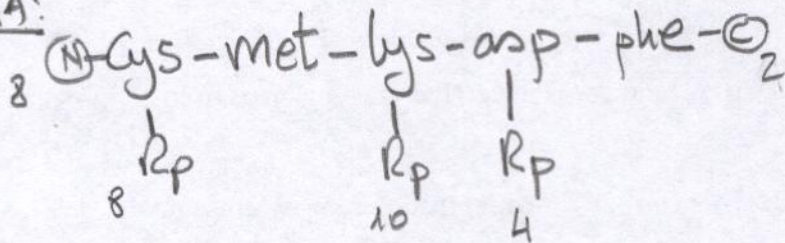 A:
8 (N)-Cys-met-lys-asp-phe-(C) 2
Rp Rp Rp
8 10 4